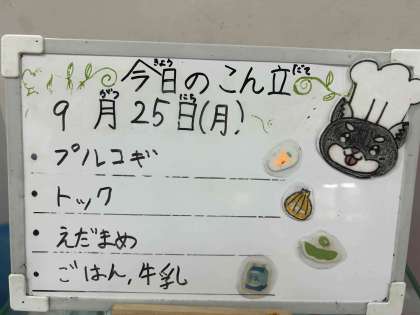 今日のこん立
9月25日(月)
・プルコギ
・トック
・えだまめ
・ごはん,牛乳